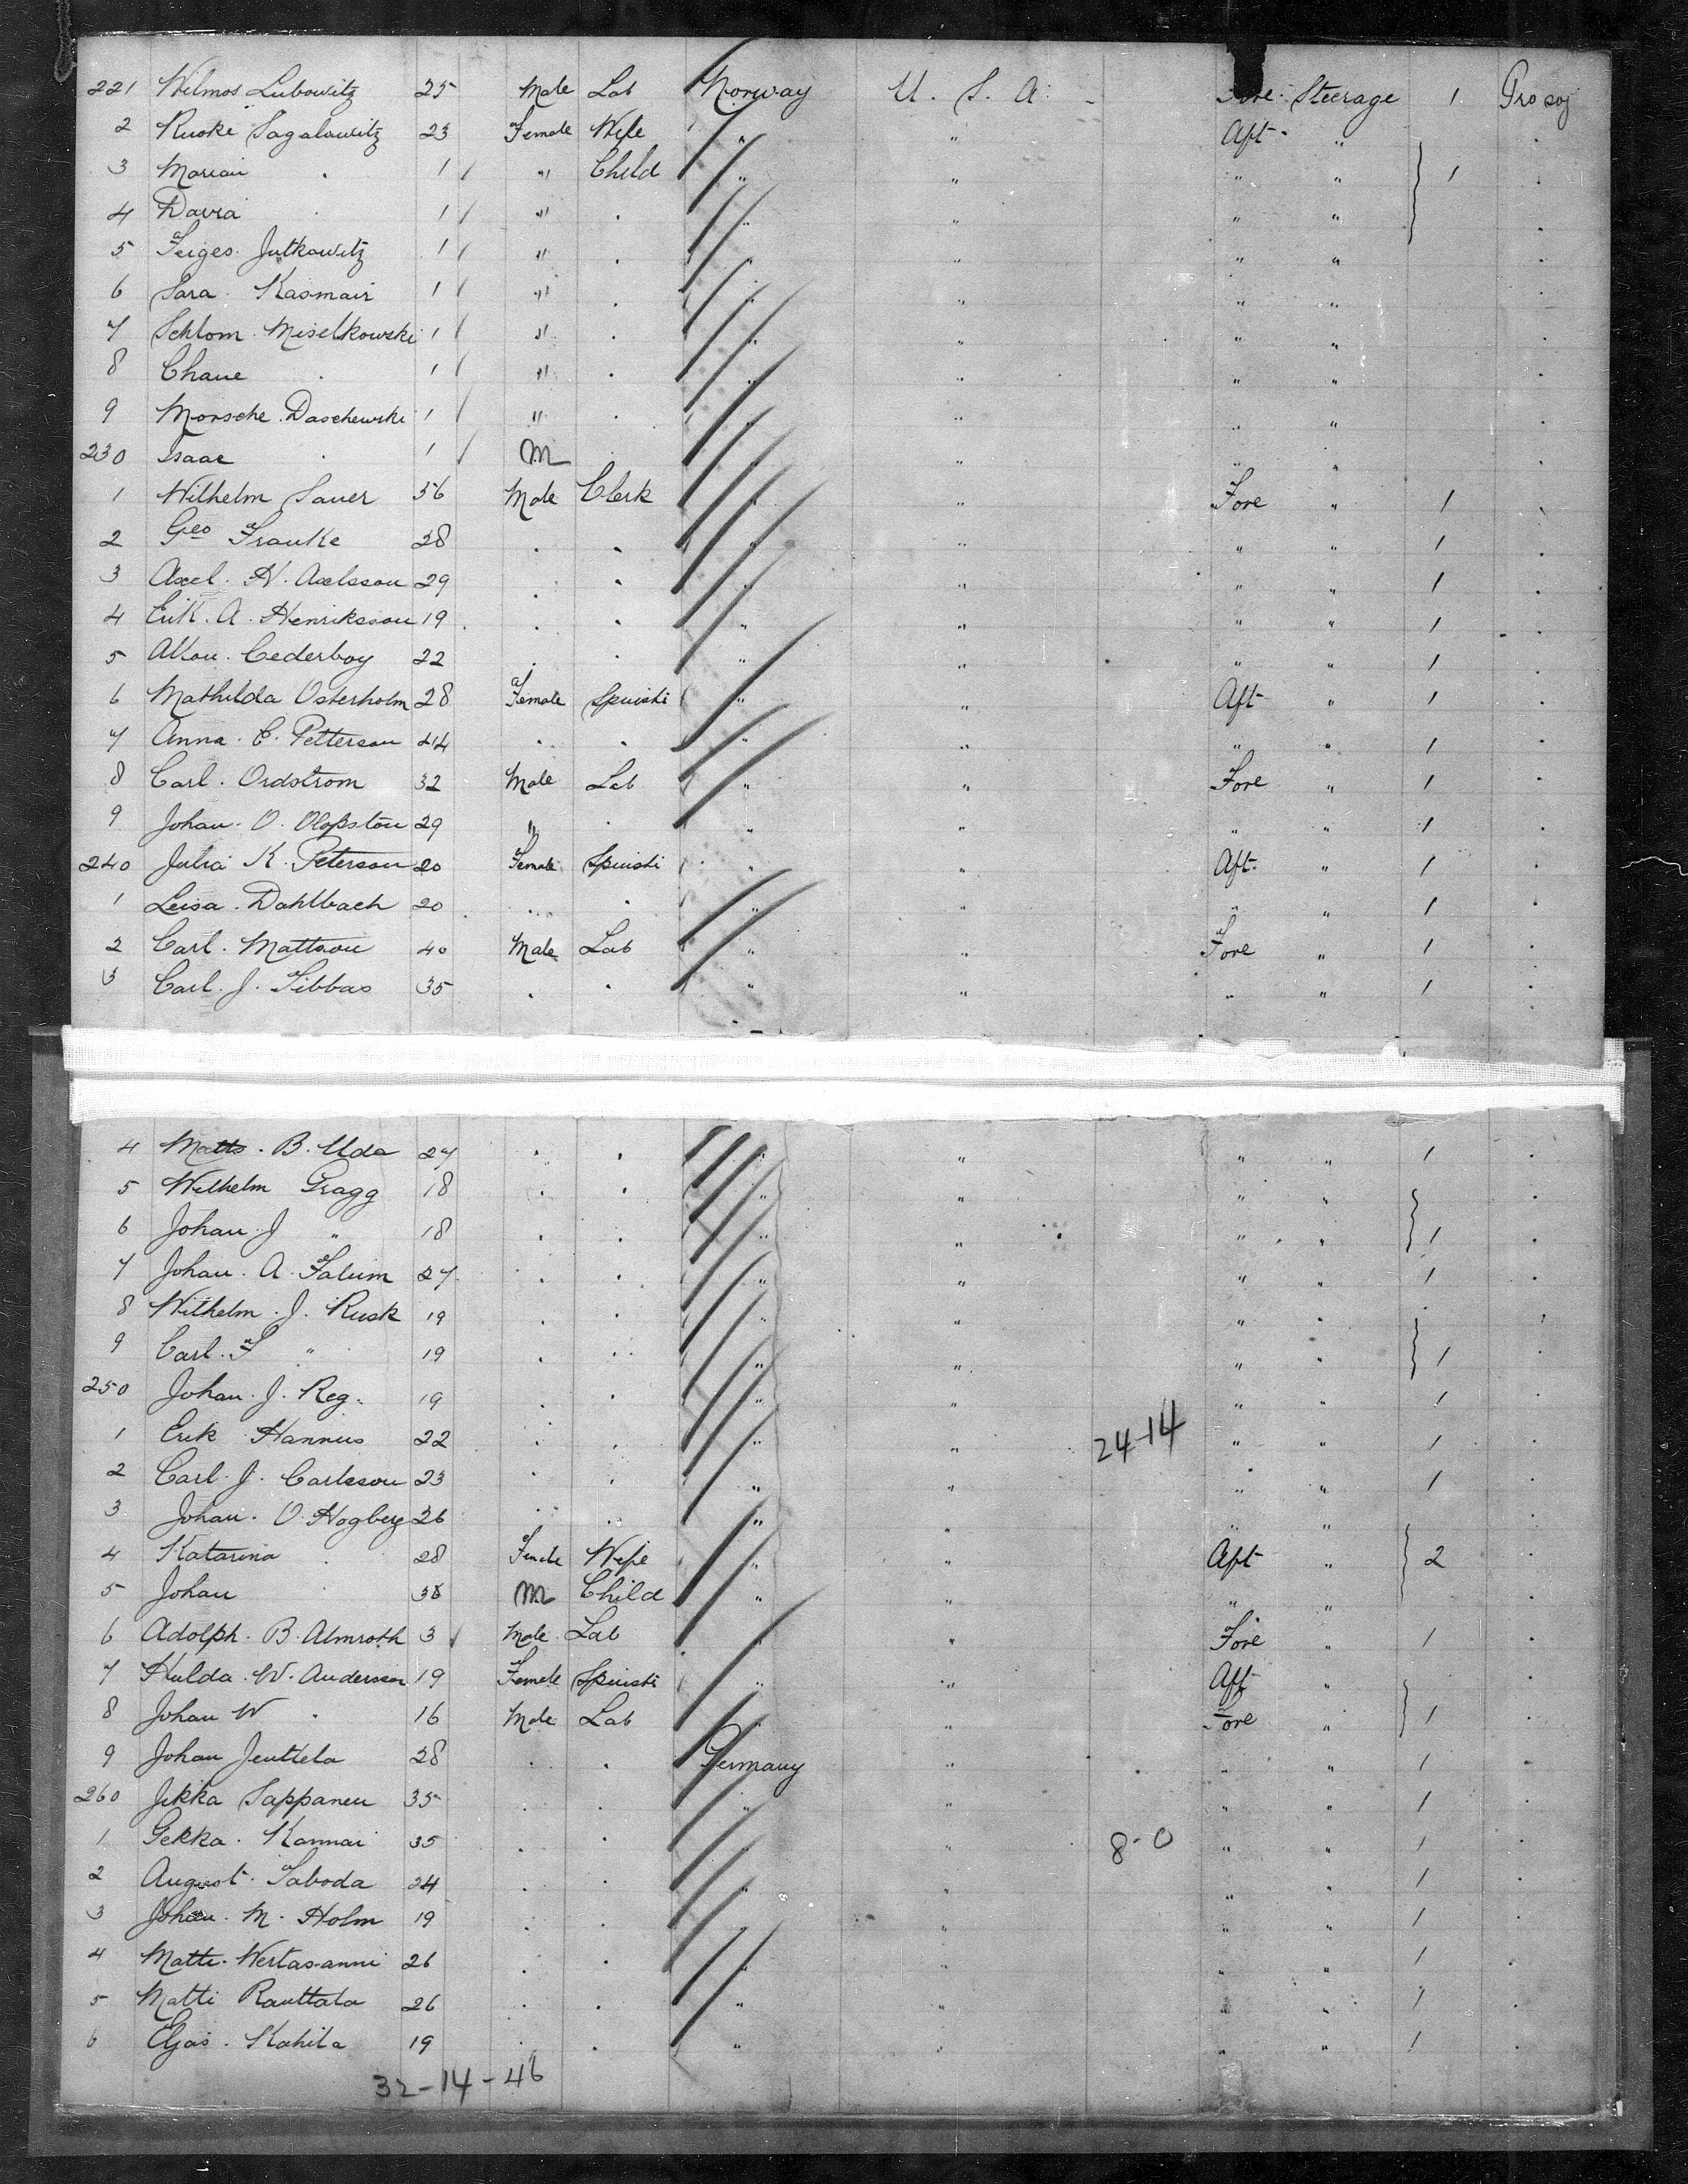 221 Wilmos Lubowitz 25 Male Lab Norway U. S. A. Fore Steerage 1 Pro soj
2 Ruske Sagalowitz 23 Female Wife " " Aft "
3 Marian . 1 " Child " " " " 1 .
4 Davia . 1 " . " " " .
5 Feiges Jutkowitz 1 " . " " " " .
6 Sara Kasmair 1 " . " " " " .
7 Schlom Miselkowski 1 " . " " " " .
8 Chaue . 1 " . " " " " .
9 Morsche Daschewski 1 " . " " " .
230 Isaac . 1 M . " " " .
1 Wilhelm Sauer 56 Male Clerk " " Fore " 1
2 Geo Franke 38 . . " " " 1 .
3 Axel. H. Axelsson 29 . . " " " " 1 .
4 Erik. A. Henriksson 19 . . " " " " 1 .
5 Cederboy 22 . . " " " " 1 .
6 Mathilda Osterholm 28 Female Spinsti " " Aft " 1 .
7 Anna. C. Petterson . . " " " " 1 .
8 Carl. Ordstrom 32 Male Lab " " Fore " 1 .
9 Johan. O. 29 " . " " " " 1 .
240 Julia K. Peterson 20 Female Spinsti " " Aft " 1 .
1 Leisa. Dahlbach 20 . . " " " " 1 .
2 Carl. Mattson 40 Male Lab " " Fore " 1 .
3 Carl. J. Sibbas 35 . . " " " " 1 .
4 Matts. B. Uda 27 . . " " " " 1 .
5 Wilhelm Gragg 18 . . " " " " .
6 Johan J " 18 . . " " " " 1 .
7 Johan. A. Falum 27 . . " " " " 1 .
8 Wilhelm. J. Rusk 19 . . " " "
9 Carl. F " 19 . . " " " " 1 .
250 Johan. J. Reg. 19 . . " " " " 1 .
1 Erik Hannus 22 . . " " 24-14 " " 1 .
2 Carl. J. Carlsson 23 . . " " " " 1 .
3 Johan. O. Hogberg 26 . . " " " "
4 Katarina . 28 Female Wife " " Aft " 2 .
5 Johan . M Child " " " "
6 Adolph. B. Almroth 3 Male Lab " Fore " 1 .
7 Hulda. W. Andersson 19 Female Spinsti " " Aft " .
8 Johan W . 16 Male Lab " Fore " 1 .
9 Johan Jeuttela 28 . . Germany " " " 1 .
260 Jekka Sappanen 35 . . " " " " 1 .
1 Gekka. Kannai 35 . . " " 8-0 " " 1 .
2 August. Saboda 24 . . " " " " 1 .
3 Johan. M. Holm 19 . . " " " " 1 .
4 Matti. Wertasanni 26 . . " " " " 1 .
5 Matti Rauttala 26 . . " " " " 1 .
6 Eljas. Kahila 19 . . " " " " 1
32-14-46